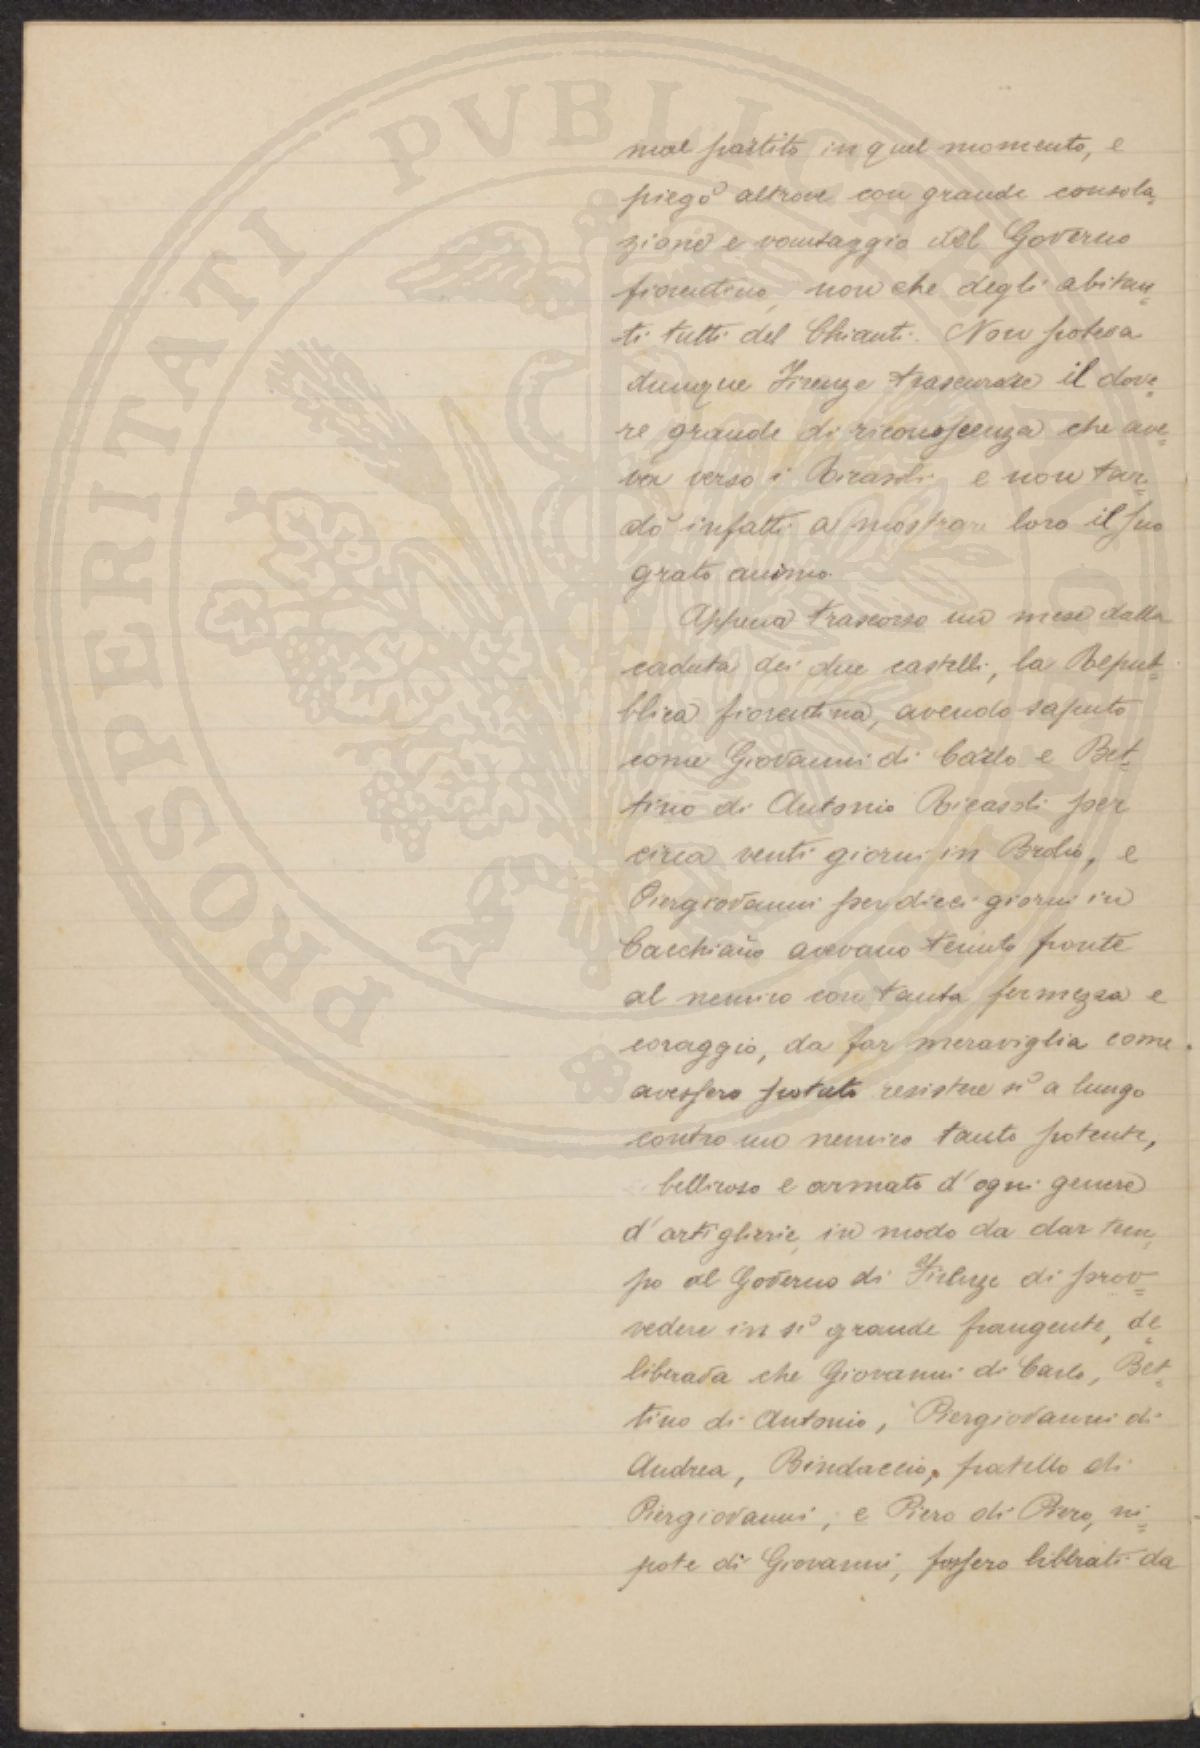 mal partito in quel momento, e
piegò altrove con grande consola=
zione e vantaggio del Governo
fiorentino, non che degli abitan=
ti tutti del Chianti. Non poteva
dunque Firenze trascurare il dove=
re grande di riconoscenza che ave=
va verso i Ricasoli e non tar=
dò infatti a mostrare loro il suo
grato animo.
Appena trascorso un mese dalla
caduta dei due castelli, la Repub=
blica fiorentina, avendo saputo
come Giovanni di Carlo e Bet=
tino di Antonio Ricasoli per
circa venti giorni in Brolio, e
Piergiovanni per dieci giorni in
Cacchiano avevano tenuto fronte
al nemico con tanta fermezza e
coraggio, da far meraviglia come
avessero potuto resistere sì a lungo
contro un nemico tanto potente,
bellicoso e armato d'ogni genere
d'artiglierie, in modo da dar tem=
po al Governo di Firenze di prov=
vedere in sì grande frangente, de=
liberava che Giovanni di Carlo, Bet=
tino di Antonio, Piergiovanni di
Andrea, Bindaccio, fratello di
Piergiovanni, e Piero di Piero, ni=
pote di Giovanni, fossero liberati da
PROSPERITATI PVBLICAE